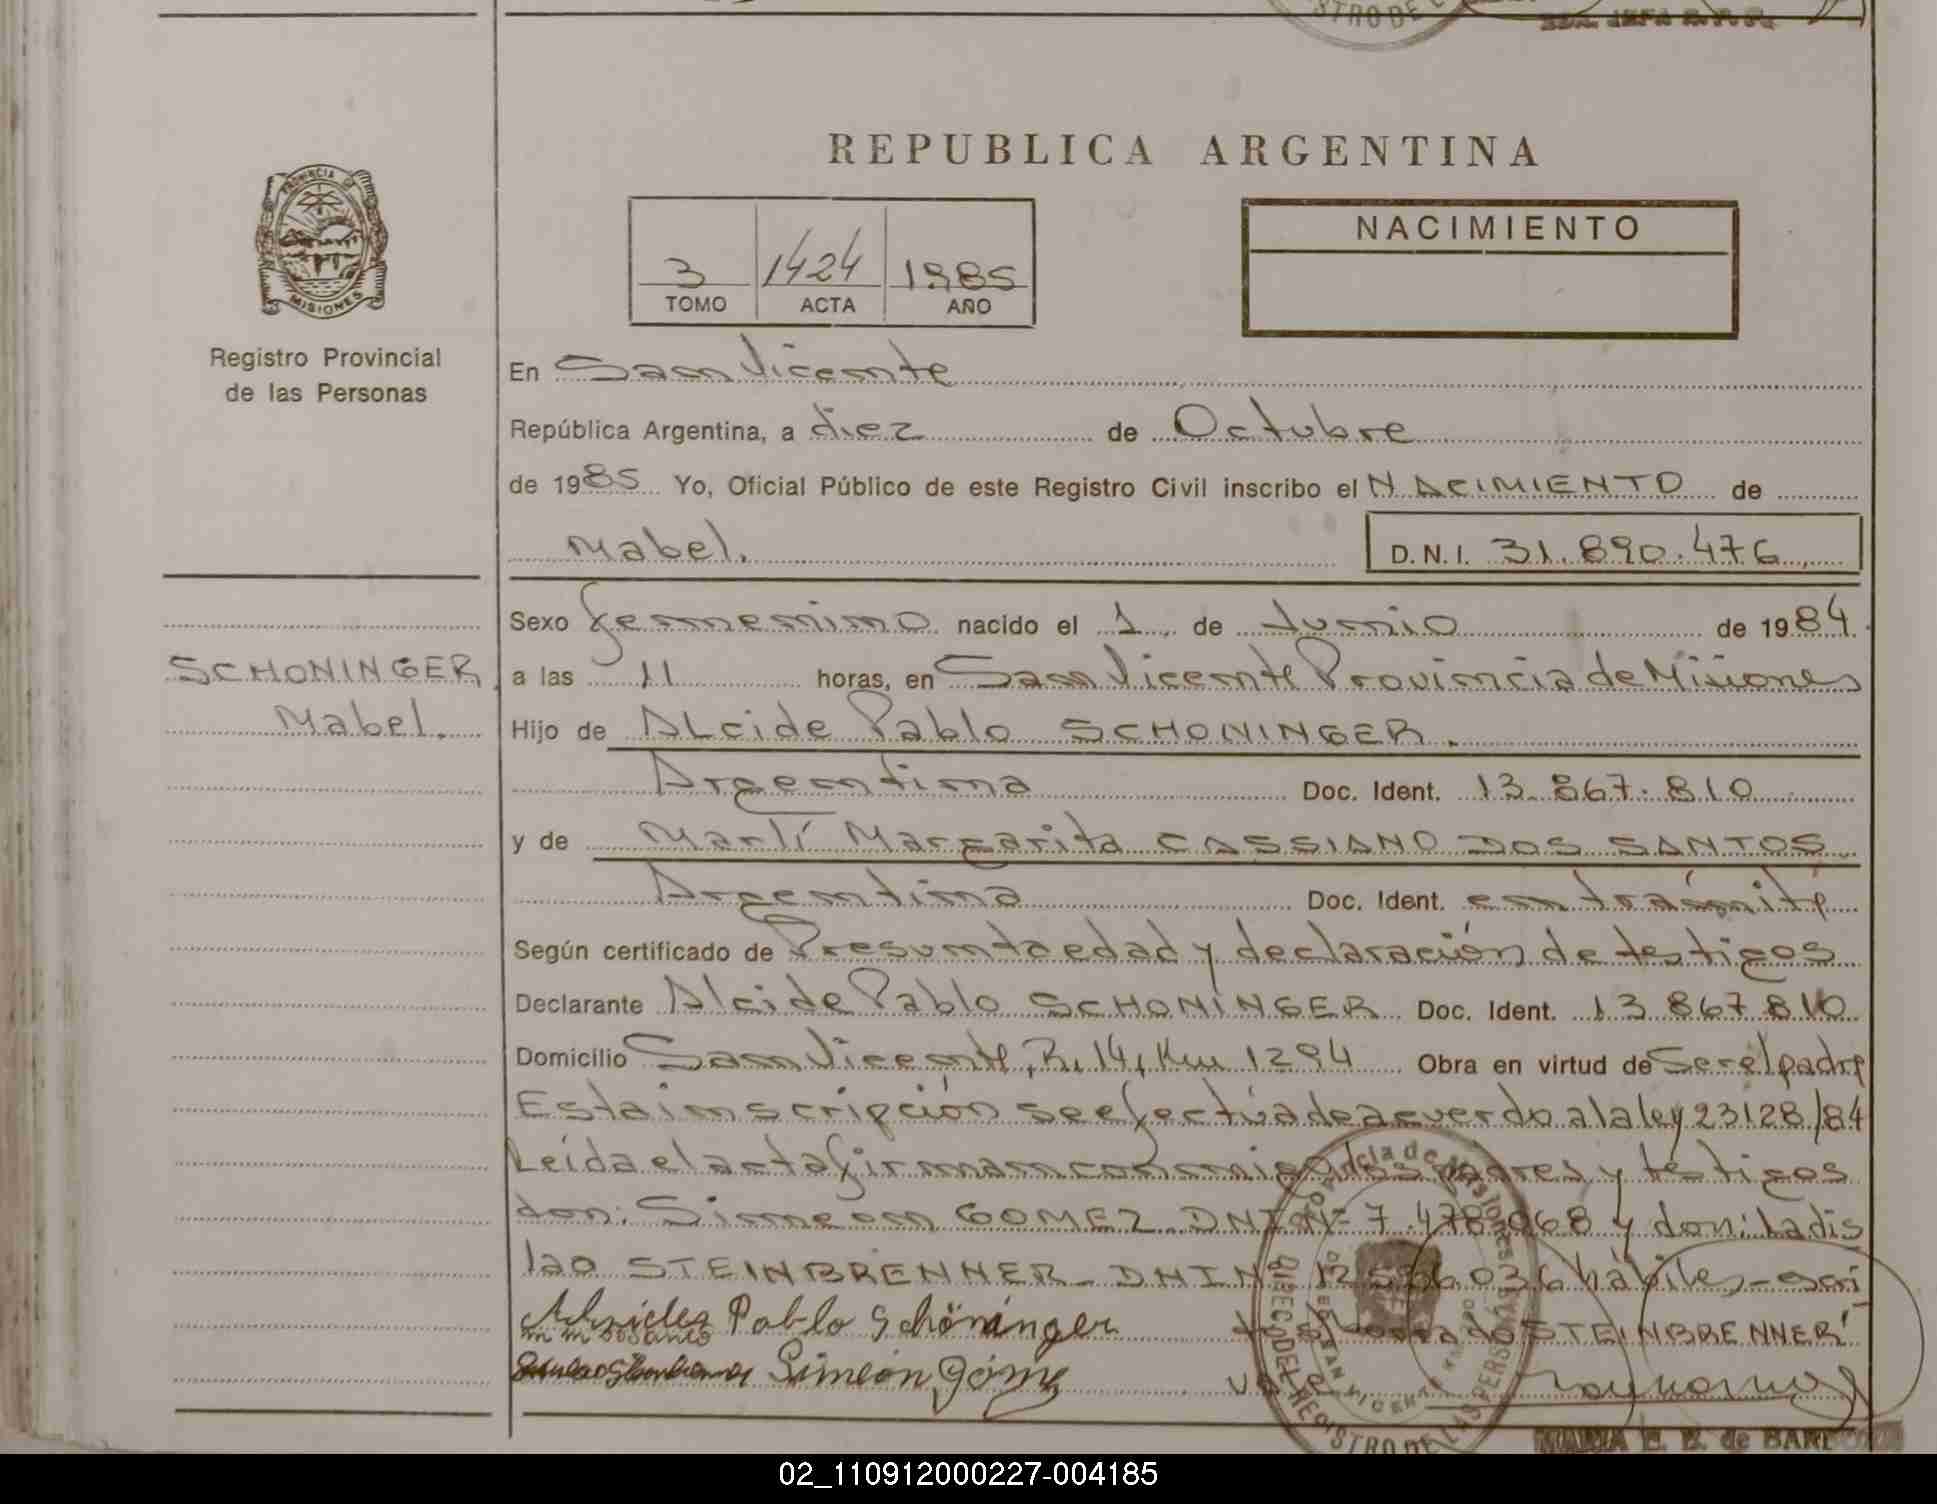 REPUBLICA ARGENTINA
PROVINCIA DE
MISIONES
Registro Provincial
de las Personas
3 1424 1985
TOMO ACTA AÑO
NACIMIENTO
En San Vicente
República Argentina, a diez de Octubre
de 1985 Yo, Oficial Público de este Registro Civil inscribo el NACIMIENTO de
Mabel.
D.N.I. 31.890.476
SCHONINGER
Mabel.
Sexo femenino nacido el 1 de Junio de 1984
a las 11 horas, en San Vicente Provincia de Misiones
Hijo de ALcide Pablo SCHONINGER.
Argentina Doc. Ident. 13.867.810
y de Marlí Margarita CASSIANO DOS SANTOS
Argentina Doc. Ident. en trámite
Según certificado de Presunta edad y declaración de testigos
Declarante Alcide Pablo SCHONINGER Doc. Ident. 13 867 810
Domicilio San Vicente, R. 14, Km 1294 Obra en virtud de Ser el padre
Esta inscripción se efectúa de acuerdo a la ley 23128/84
Leída el acta firman conmigo los padres y testigos
don: Simeon GOMEZ DNI Nº 7.478.068 y don: Ladis
lao STEINBRENNER DNI N 12 586 036 hábiles
Pablo Schöninger
STEINBRENNER
Simeón Gómez
Provincia de Misiones
REGISTRO DE LAS PERSONAS
SAN VICENTE
de BAR
02_110912000227-004185